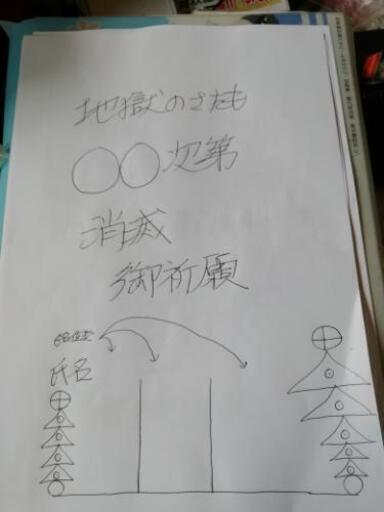 地獄のさたも
○○次第
消滅
御祈願
氏名